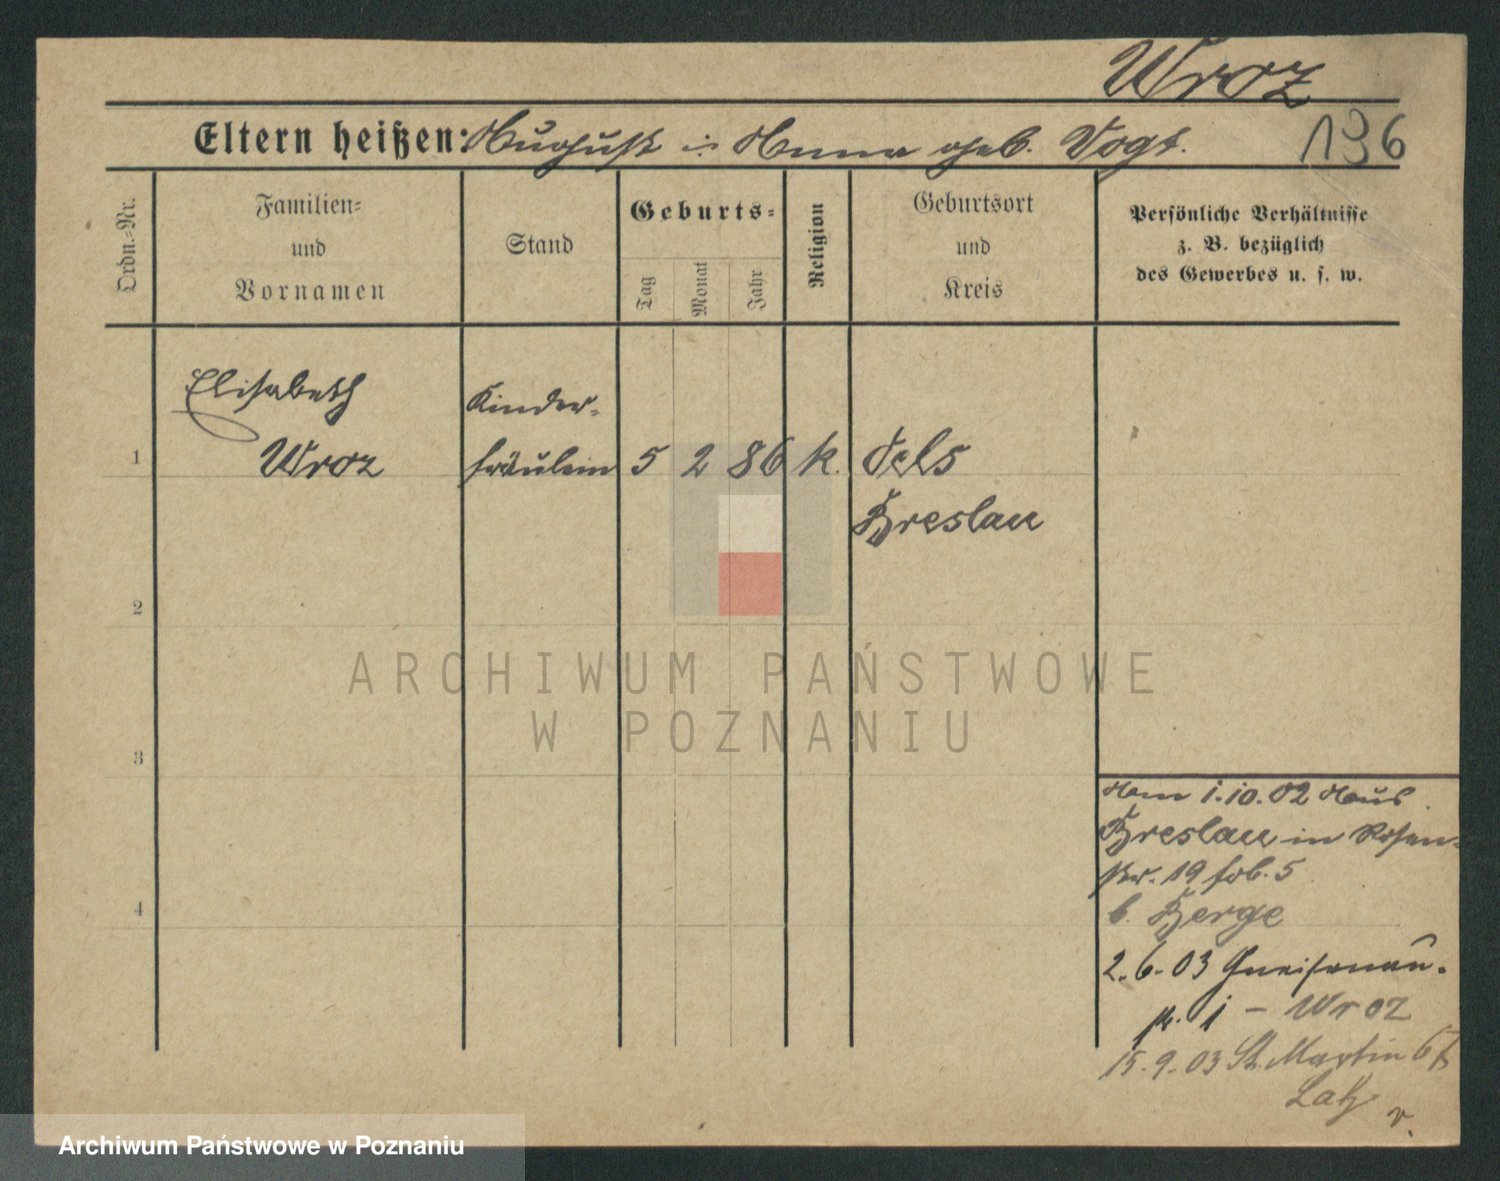 Wroz
Eltern heißen: August u. Anna geb. Vogt.
136
Ordn.-Nr.
Familien-
und
Vornamen
Stand
Geburts-
Tag
Monat
Jahr
Religion
Geburtsort
und
Kreis
Persönliche Verhältnisse
z. B. bezüglich
des Gewerbes u. s. w.
1
Elisabeth
Wroz
Kinder-
fräulein
5 2 86 k.
Oels
Breslau
2
3
4
Am 1.10.02 Aus
Breslau in Rosen-
str. 19 fol. 5
b. Berge
2.6.03 Gneisenau-
str. 1 - Wroz
15.9.03 St. Martin 67
v.
ARCHIWUM PAŃSTWOWE
W POZNANIU
Archiwum Państwowe w Poznaniu